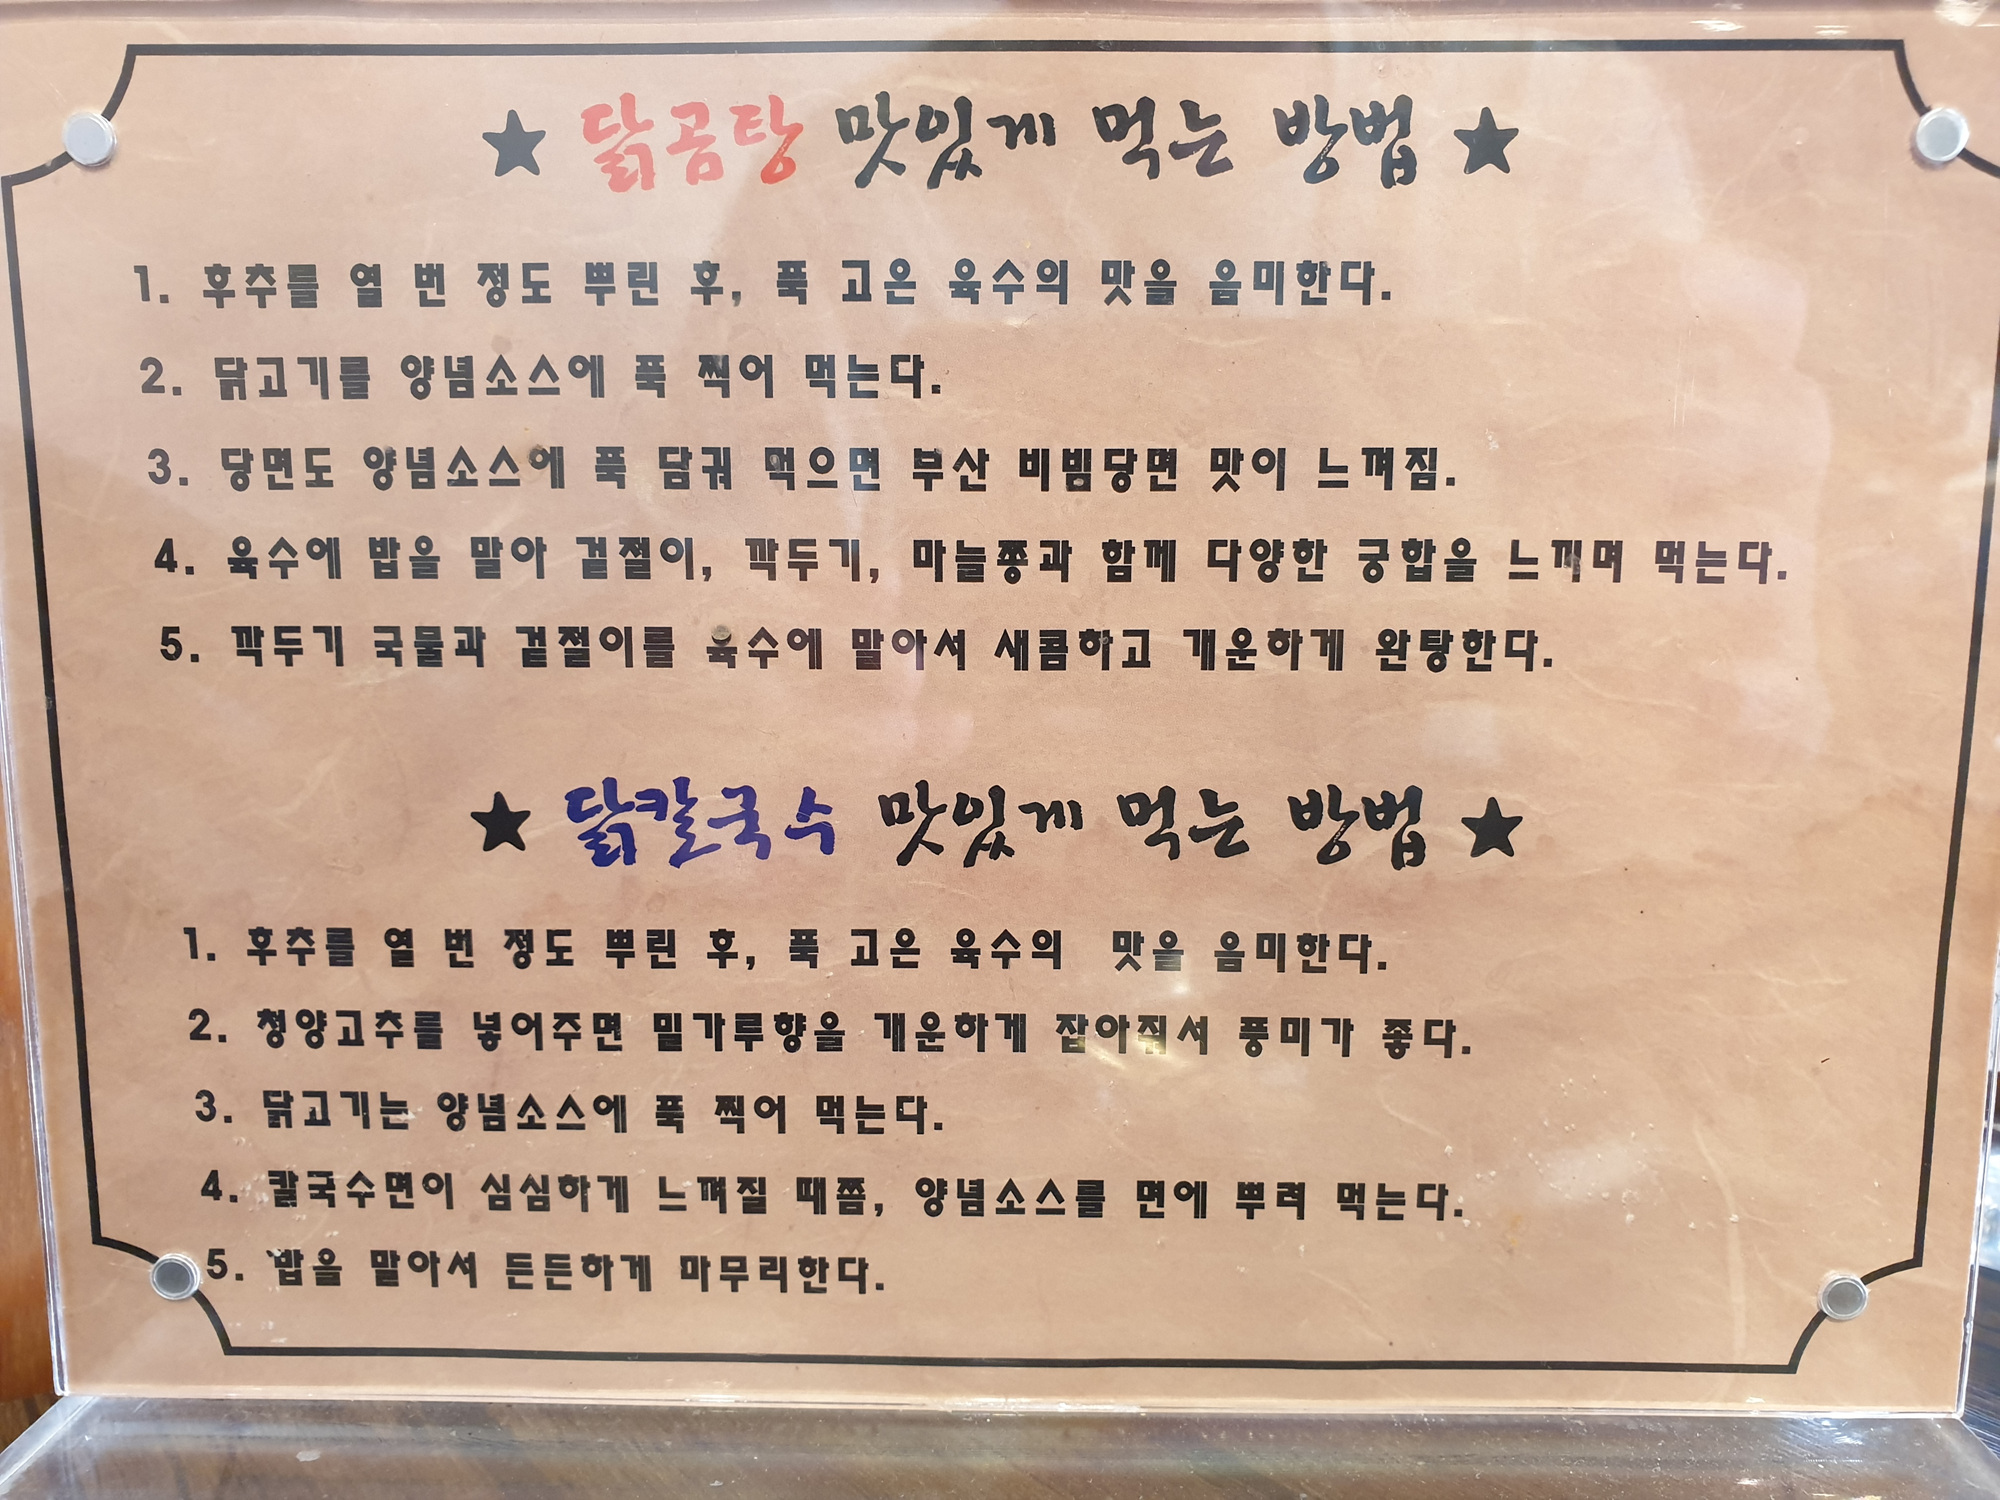 ★ 닭곰탕 맛있게 먹는 방법 ★
1. 후추를 열 번 정도 뿌린 후, 푹 고은 육수의 맛을 음미한다.
2. 닭고기를 양념소스에 푹 찍어 먹는다.
3. 당면도 양념소스에 푹 담궈 먹으면 부산 비빔당면 맛이 느껴짐.
4. 육수에 밥을 말아 겉절이, 깍두기, 마늘쫑과 함께 다양한 궁합을 느끼며 먹는다.
5. 깍두기 국물과 겉절이를 육수에 말아서 새콤하고 개운하게 완탕한다.
★ 닭칼국수 맛있게 먹는 방법 ★
1. 후추를 열 번 정도 뿌린 후, 푹 고은 육수의 맛을 음미한다.
2. 청양고추를 넣어주면 밀가루향을 개운하게 잡아줘서 풍미가 좋다.
3. 닭고기는 양념소스에 푹 찍어 먹는다.
4. 칼국수면이 심심하게 느껴질 때쯤, 양념소스를 면에 뿌려 먹는다.
5. 밥을 말아서 든든하게 마무리한다.